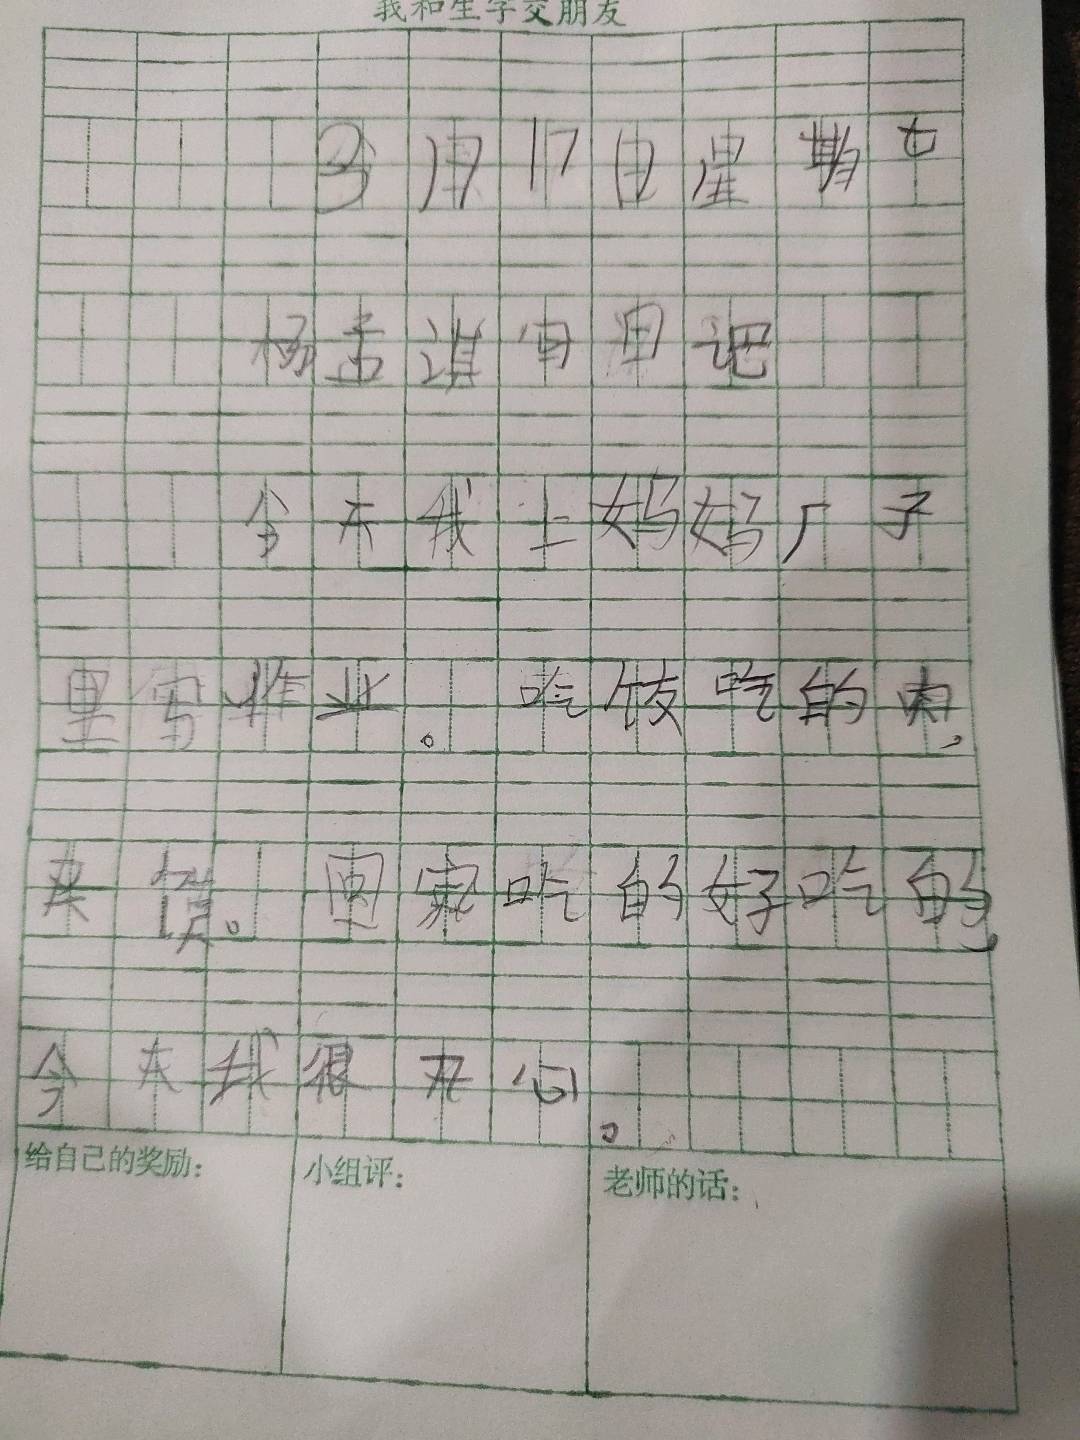 我和生字交朋友
3月17日星期七
杨孟淇 日记
今天我上妈妈厂子
里写作业。吃饭吃的肉,
回家吃的好吃的
今天我很开心。
给自己的奖励:
小组评:
老师的话: